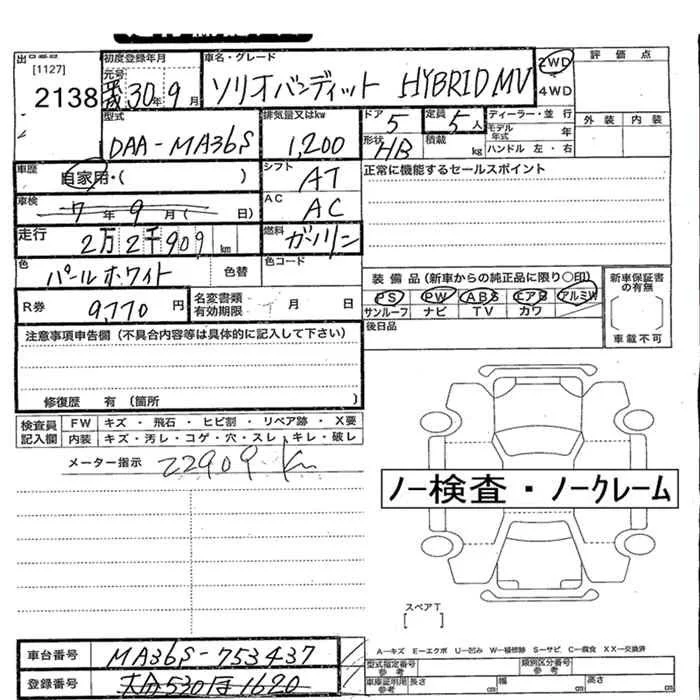 出品番号 初度登録年月 車名・グレード 2WD 評価点
[1127] 元号 4WD
2138 平成 30年 9月 ソリオバンディット HYBRID MV
型式 排気量又はkw ドア 定員 ディーラー・並行 外装 内装
DAA-MA36S 1,200 5 5人 モデル年式 年
形状 HB 積載 kg ハンドル 左・右
車歴 自家用・( ) シフト AT 正常に機能するセールスポイント
車検 7年 9月( 日) AC AC
走行 2万2千909km 燃料 ガソリン
色 パールホワイト 色替 色コード
装備品(新車からの純正品に限り○印) 新車保証書の有無
R券 9,770円 名変書類有効期限 月 日 PS PW ABS エアB アルミW
サンルーフ ナビ TV カワ
車載不可
注意事項申告欄(不具合内容等は具体的に記入して下さい) 後日品
修復歴 有(箇所 )
検査員記入欄 FW キズ・飛石・ヒビ割・リペア跡・X要
内装 キズ・汚レ・コゲ・穴・スレ・キレ・破レ
メーター指示 22909 Km
ノー検査・ノークレーム
スペアT
[ ]
A—キズ E—エクボ U—凹み W—補修跡 S—サビ C—腐食 XX—交換済
車台番号 MA36S-753437
型式指定番号 参考 類別区分番号 参考
登録番号 大分530ほ1620
車庫証明用 参考 長さ cm 幅 cm 高さ cm